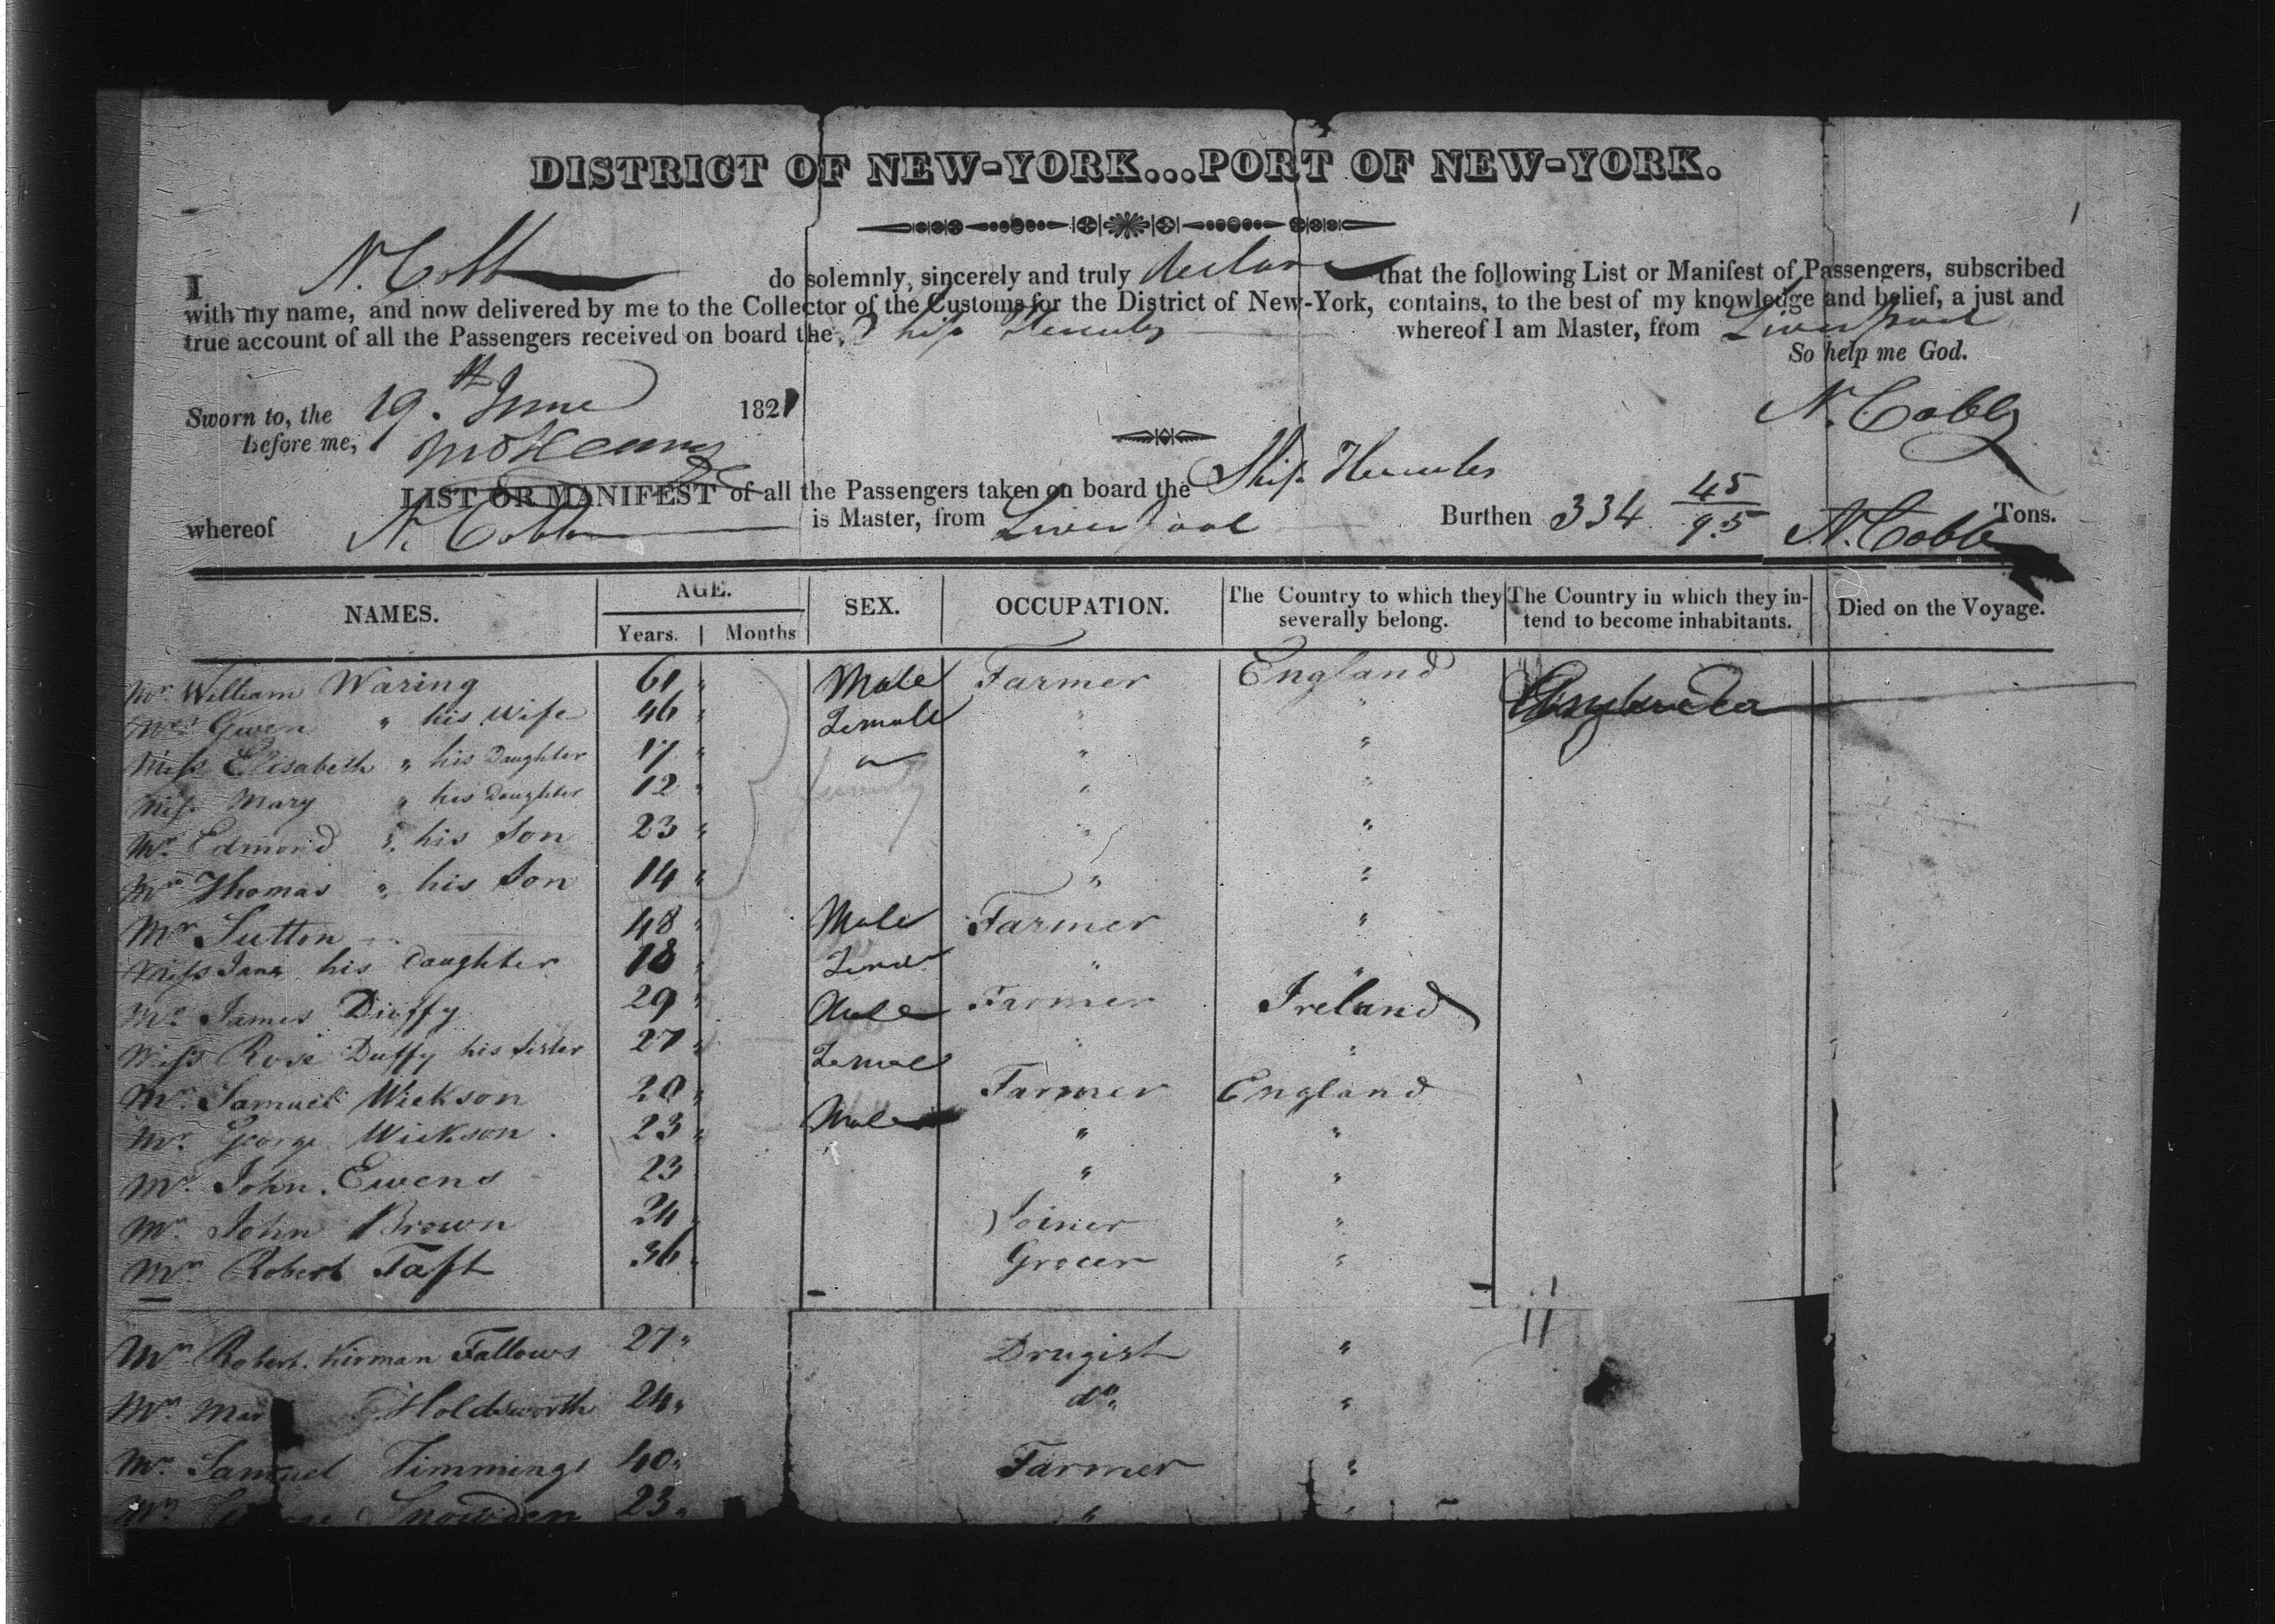 DISTRICT OF NEW-YORK...PORT OF NEW-YORK.
I N. Cobb do solemnly, sincerely and truly declare that the following List or Manifest of Passengers, subscribed
with my name, and now delivered by me to the Collector of the Customs for the District of New-York, contains, to the best of my knowledge and belief, a just and
true account of all the Passengers received on board the Ship Hercules whereof I am Master, from Liverpool
So help me God.
Sworn to, the 19.th June 1821 N. Cobb
Before me,
LIST OR MANIFEST of all the Passengers taken on board the Ship Hercules
whereof N. Cobb is Master, from Liverpool Burthen 334 45/95 Tons.
N. Cobb
NAMES. AGE. SEX. OCCUPATION. The Country to which they severally belong. The Country in which they intend to become inhabitants. Died on the Voyage.
Years. Months
Mr William Waring 61 " Male Farmer England
Mrs Gwen " his Wife 46 " Female " "
Miss Elisabeth " his Daughter 17 " " " "
Miss Mary " his Daughter 12 " family " "
Mr Edmond " his Son 23 " " "
Mr Thomas " his Son 14 " " "
Mr Sutton 48 " Male Farmer "
Miss Jane his Daughter 18 " " "
Mr James Duffy 29 " Male Farmer Ireland
Miss Rose Duffy his Sister 27 " Female " "
Mr Samuel Wickson 20 " Farmer England
Mr George Wickson 23 " Male " "
Mr John Ewens 23 " "
Mr John Brown 24 " Joiner "
Mr Robert Taft 36 " Grocer "
Mr Robert Kirman Fallows 27 " Drugist "
Mr Holdsworth 24 " do "
Mr Samuel Timmings 40 " Farmer "
Mr Snowden 23 " " "